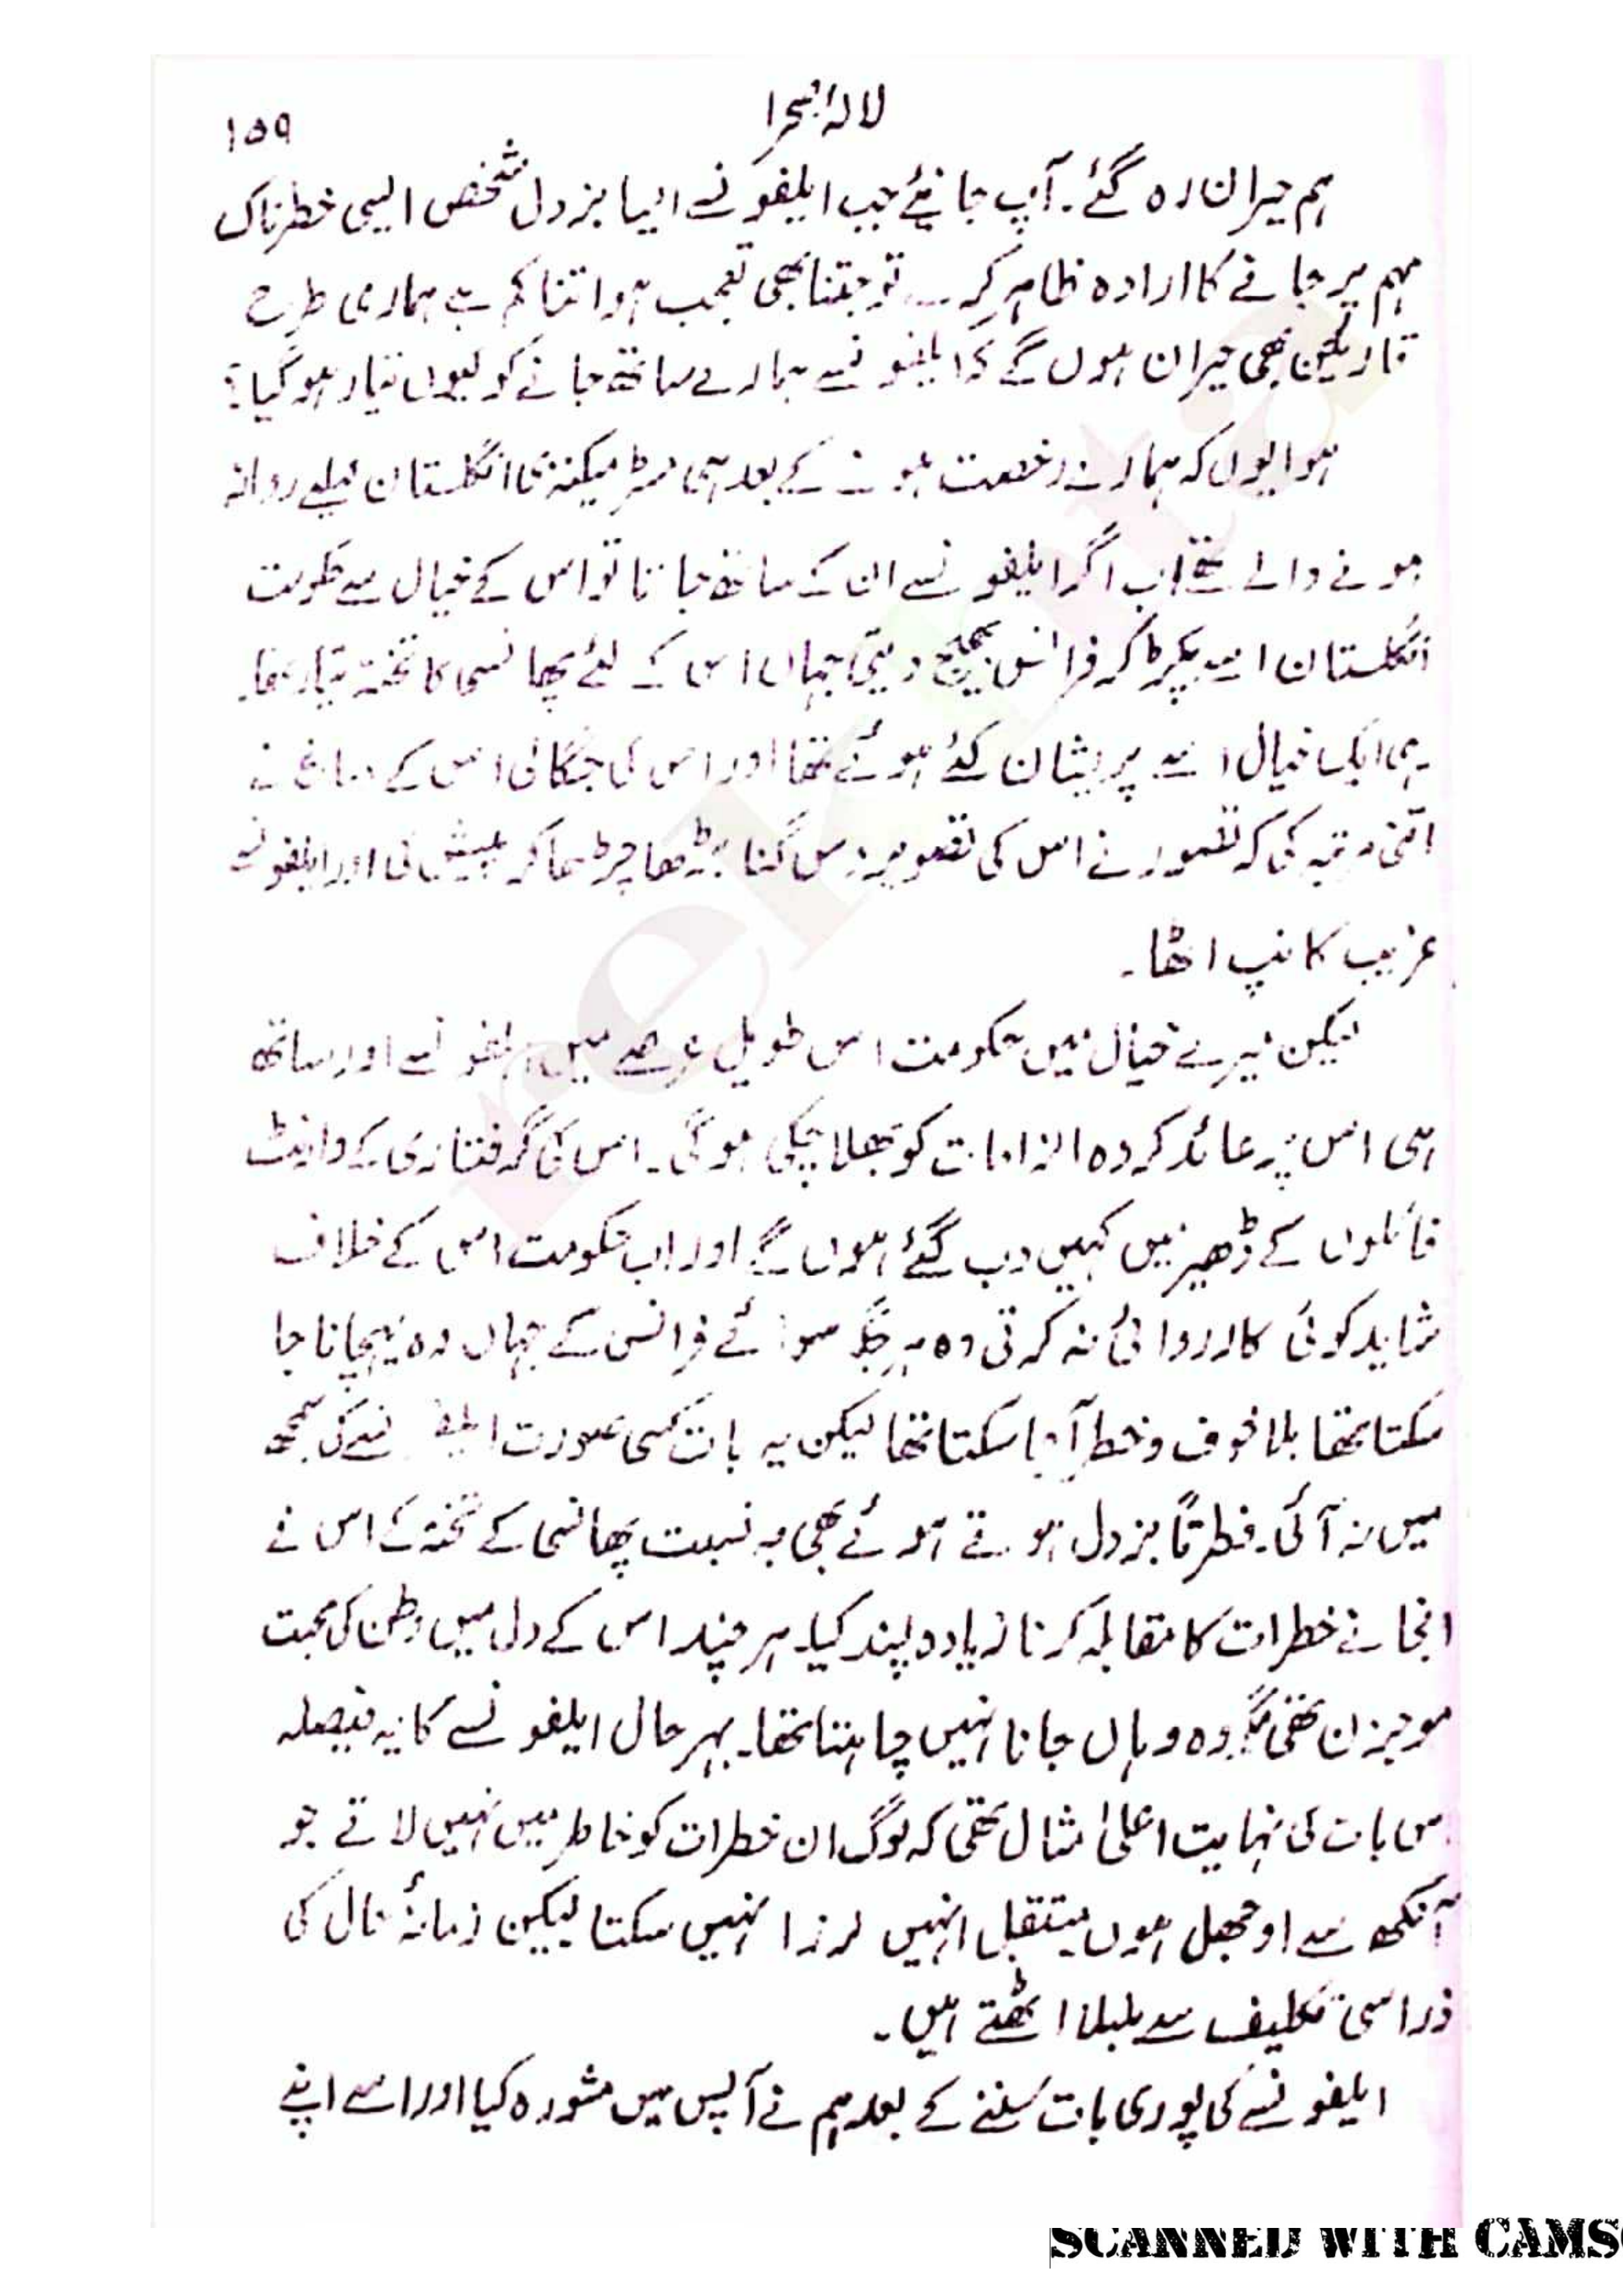 لالۂ صحرا
۱۵۹
ہم حیران رہ گئے۔ آپ جانیئے جب ایلفونسے ایسا بزدل شخص ایسی خطرناک
مہم پر جانے کا ارادہ ظاہر کرے تو جتنا بھی تعجب ہو اتنا کم ہے ہماری طرح
قارئین بھی حیران ہوں گے کہ ایلفونسے ہمارے ساتھ جانے کو کیوں تیار ہو گیا؟
ہوا یوں کہ ہمارے رخصت ہونے کے بعد ہی مسٹر میکنزی انگلستان کیلیے روانہ
ہونے والے تھے اب اگر ایلفونسے ان کے ساتھ جاتا تو اس کے خیال سے حکومت
انگلستان اسے پکڑ کر فرانس بھیج دیتی جہاں اس کے لئے پھانسی کا تختہ تیار تھا۔
یہی ایک خیال اسے پریشان کئے ہوئے تھا اور اس کی جگالی اس کے دماغ نے
اتنی مرتبہ کی کہ تصور نے اس کی تصویر دس گنا بڑھا چڑھا کر پیش کی اور ایلفونسے
غریب کانپ اٹھا۔
لیکن میرے خیال میں حکومت اس طویل عرصے میں ایلفونسے اور ساتھ
ہی اس پر عائد کردہ الزامات کو بھلا چکی ہوگی۔ اس کی گرفتاری کے وارنٹ
فائلوں کے ڈھیر میں کہیں دب گئے ہوں گے اور اب حکومت اس کے خلاف
شاید کوئی کارروائی نہ کرتی وہ ہر جگہ سوائے فرانس کے جہاں وہ پہچانا جا
سکتا تھا بلا خوف و خطر آ جا سکتا تھا لیکن یہ بات کسی صورت ایلفونسے کی سمجھ
میں نہ آئی۔ فطرتاً بزدل ہوتے ہوئے بھی بہ نسبت پھانسی کے تختہ کے اس نے
انجانے خطرات کا مقابلہ کرنا زیادہ پسند کیا۔ ہر چند اس کے دل میں وطن کی محبت
موجزن تھی مگر وہ وہاں جانا نہیں چاہتا تھا۔ بہر حال ایلفونسے کا یہ فیصلہ
اس بات کی نہایت اعلیٰ مثال تھی کہ لوگ ان خطرات کو خاطر میں نہیں لاتے جو
آنکھ سے اوجھل ہوں مستقبل انہیں لرزا نہیں سکتا لیکن زمانۂ حال کی
ذرا سی تکلیف سے بلبلا اٹھتے ہیں۔
ایلفونسے کی پوری بات سننے کے بعد ہم نے آپس میں مشورہ کیا اور اسے اپنے
rekhta
SCANNED WITH CAMS